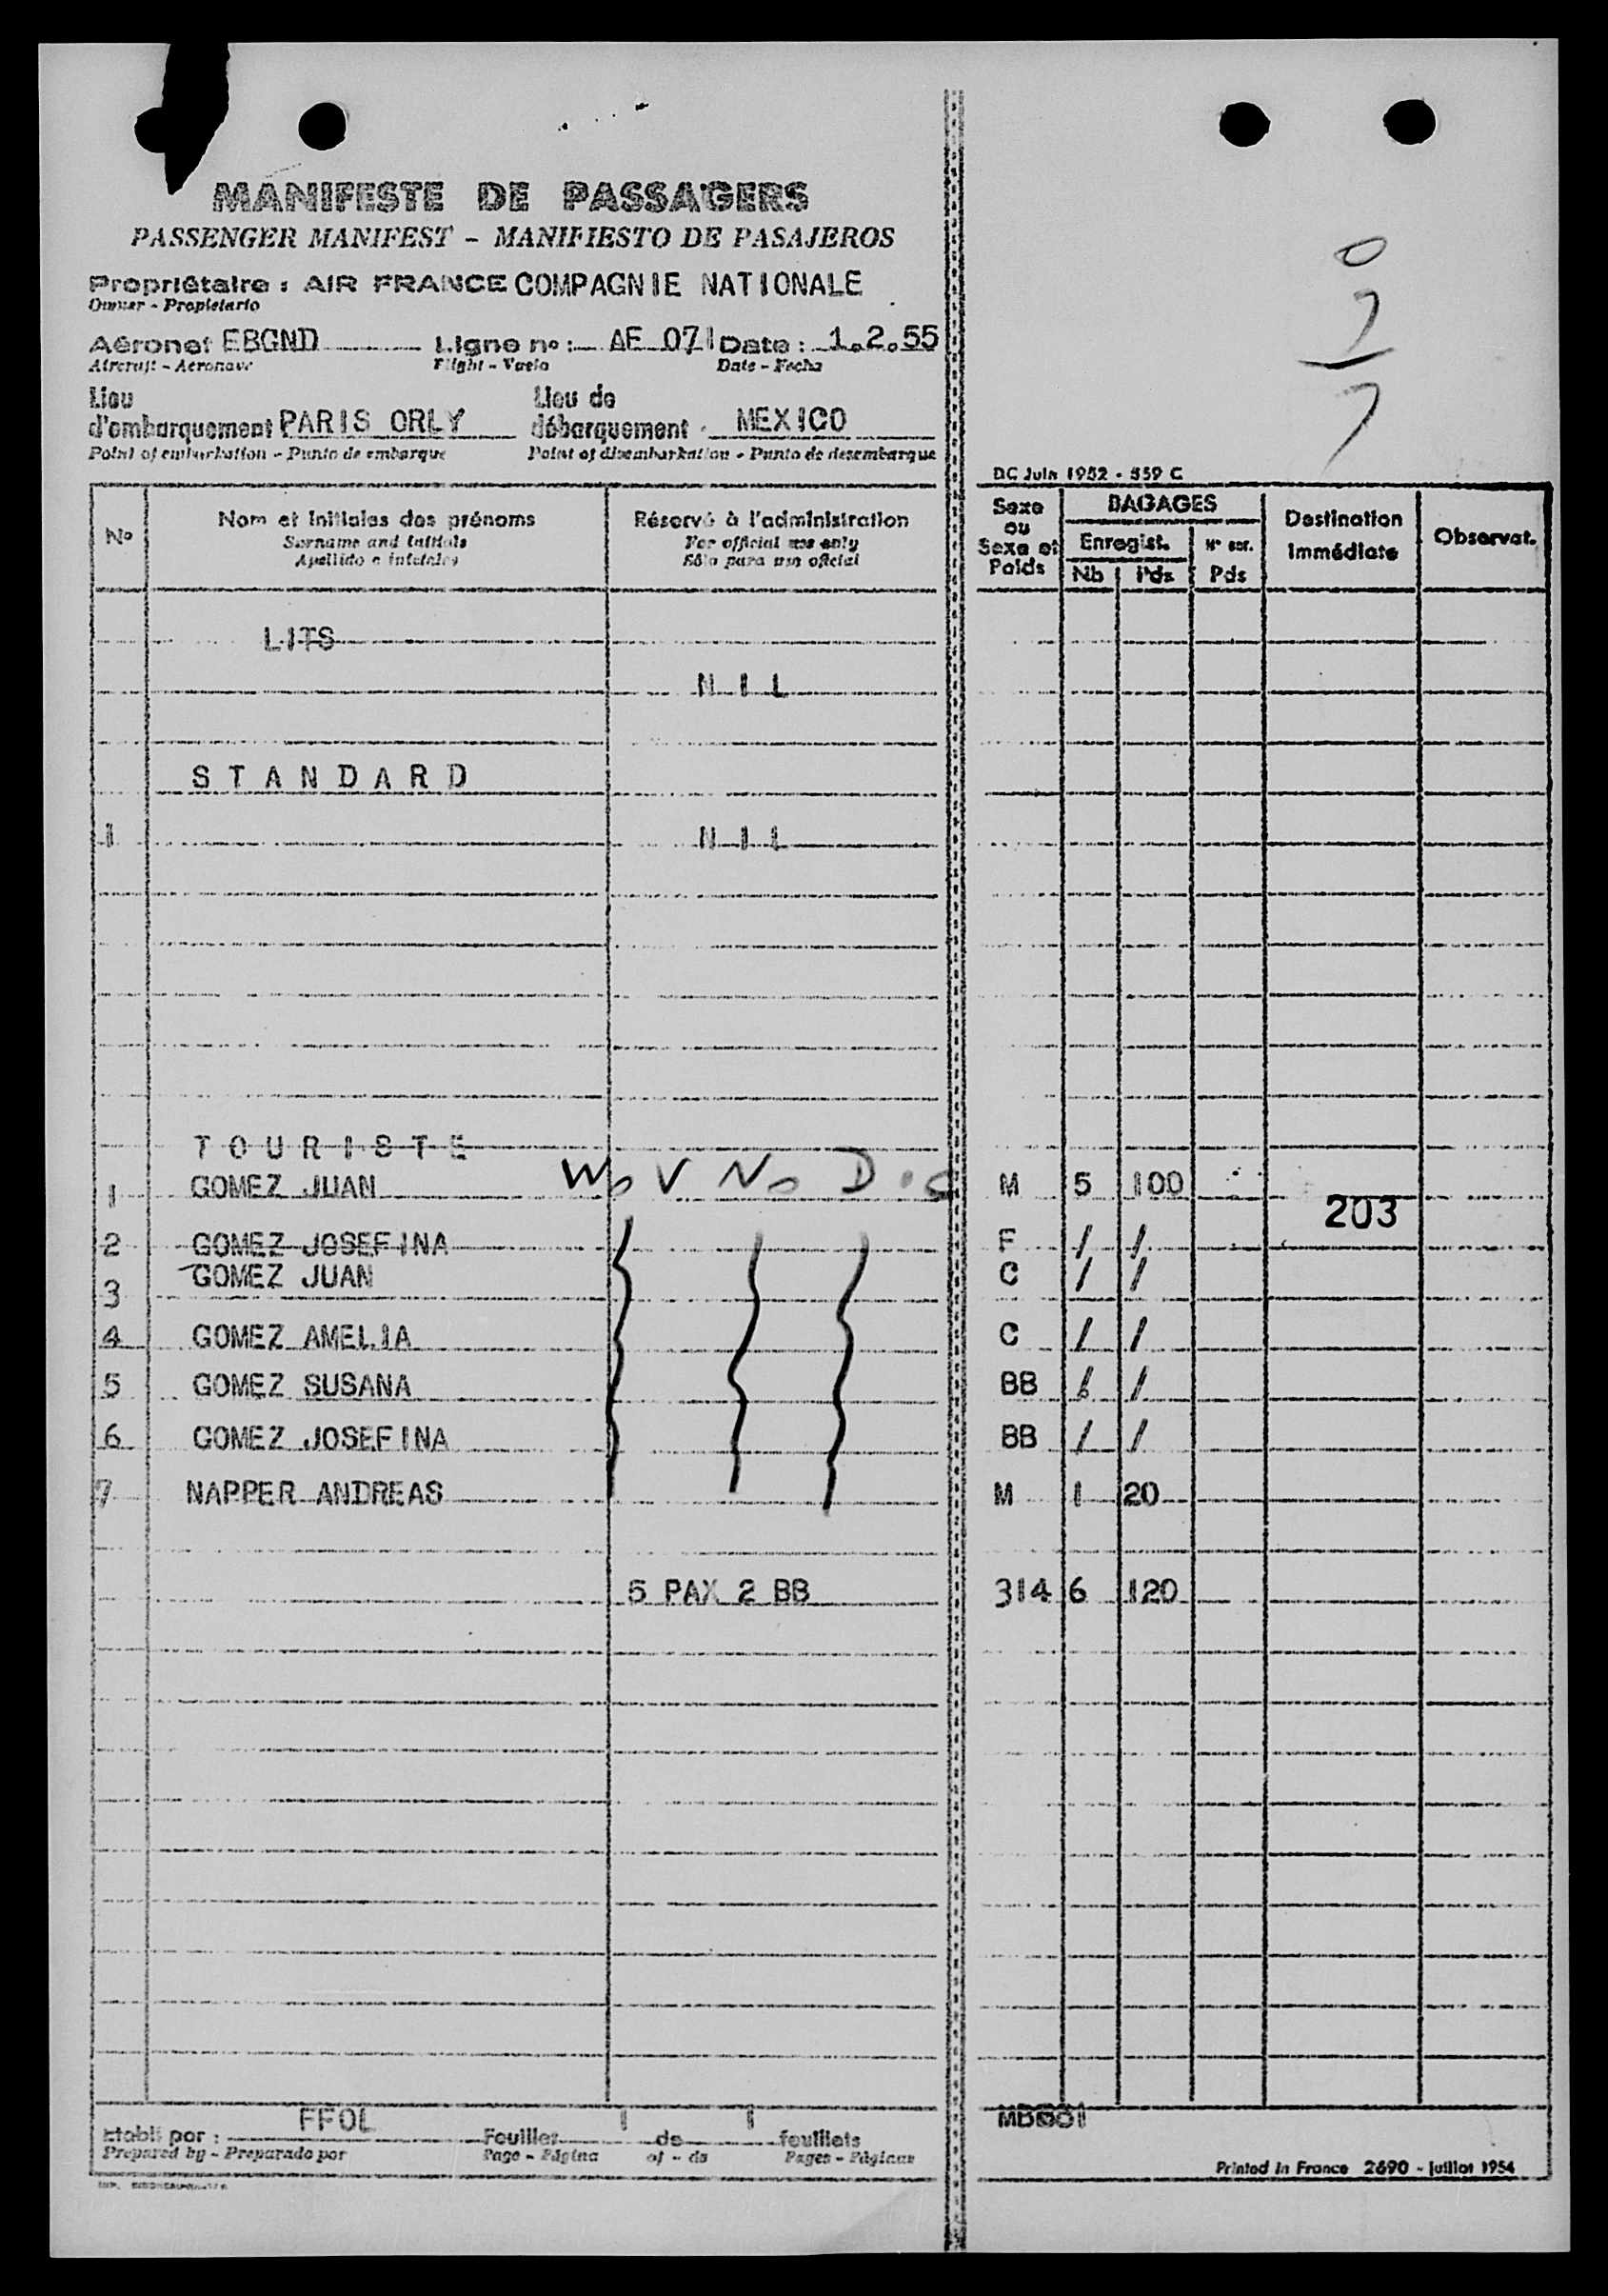 MANIFESTE DE PASSAGERS
PASSENGER MANIFEST - MANIFIESTO DE PASAJEROS
Propriétaire : AIR FRANCE COMPAGNIE NATIONALE
Owner - Propietario
Aéronef EBGND Ligne no : AF 071 Date : 1.2.55
Aircraft - Aeronave Flight - Vuelo Date - Fecha
Lieu d'embarquement PARIS ORLY Lieu de débarquement MEXICO
Point of embarkation - Punto de embarque Point of disembarkation - Punto de desembarque
0
7
7
DC Juin 1952 - 559 C
No Nom et initiales des prénoms Réservé à l'administration Sexe ou Sexe et Poids BAGAGES Destination immédiate Observat.
Surname and initials For official use only Enregist. Nb Pds
Apellido e iniciales Sólo para uso oficial Pds
LITS
NIL
STANDARD
1 NIL
TOURISTE
1 GOMEZ JUAN M 5 100
203
2 GOMEZ JOSEFINA F / /
3 GOMEZ JUAN C / /
4 GOMEZ AMELIA C / /
5 GOMEZ SUSANA BB / /
6 GOMEZ JOSEFINA BB / /
7 NAPPER ANDREAS M 1 20
5 PAX 2 BB 314 6 120
Etabli par : FFOL Feuillet 1 de 1 feuillets
Prepared by - Preparado por Page - Página of - de Pages - Páginas
Printed in France 2690 - Juillet 1954